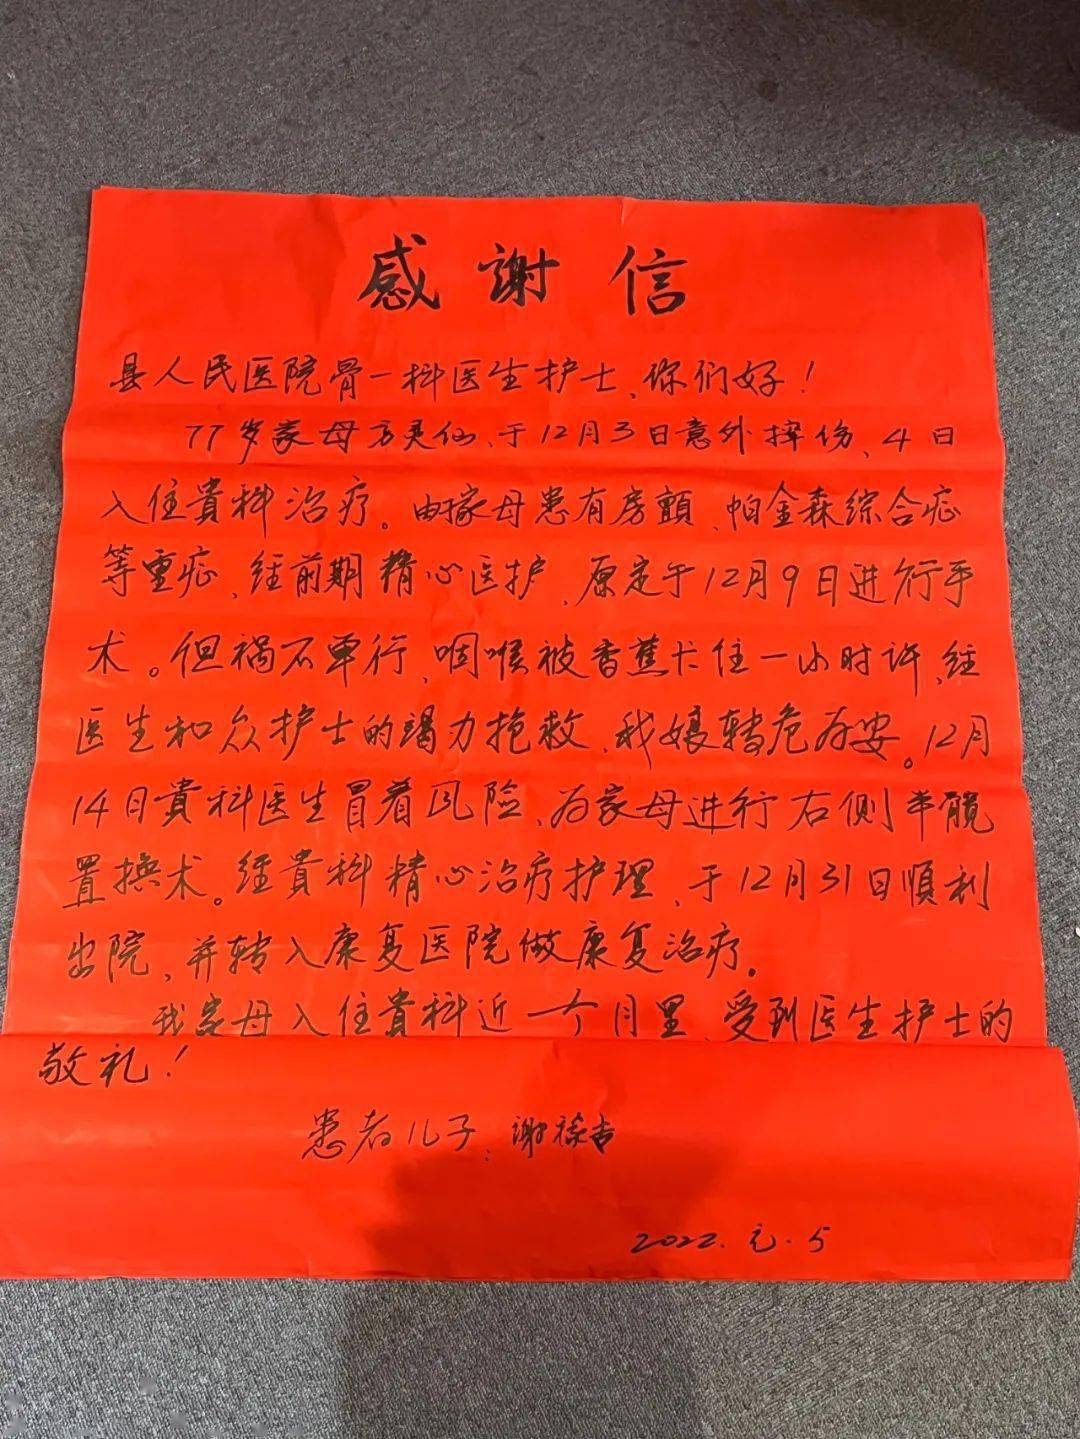 感謝信
县人民医院骨一科医生护士、你们好！
77岁家母方灵仙、于12月3日意外摔伤、4日
入住貴科治疗。由于家母患有房顫、帕金森綜合症
等重症、经前期精心医护、原定于12月9日进行手
术。但祸不单行、咽喉被香蕉卡住一小时许、经
医生和众护士的竭力抢救、我娘转危为安。12月
14日貴科医生冒着风险、为家母进行右侧半髋
置换术。经貴科精心治疗护理、于12月31日順利
出院、并转入康复医院做康复治疗。
我家母入住貴科近一个月里、受到医生护士的
敬礼！
患者儿子：謝
2022.元.5